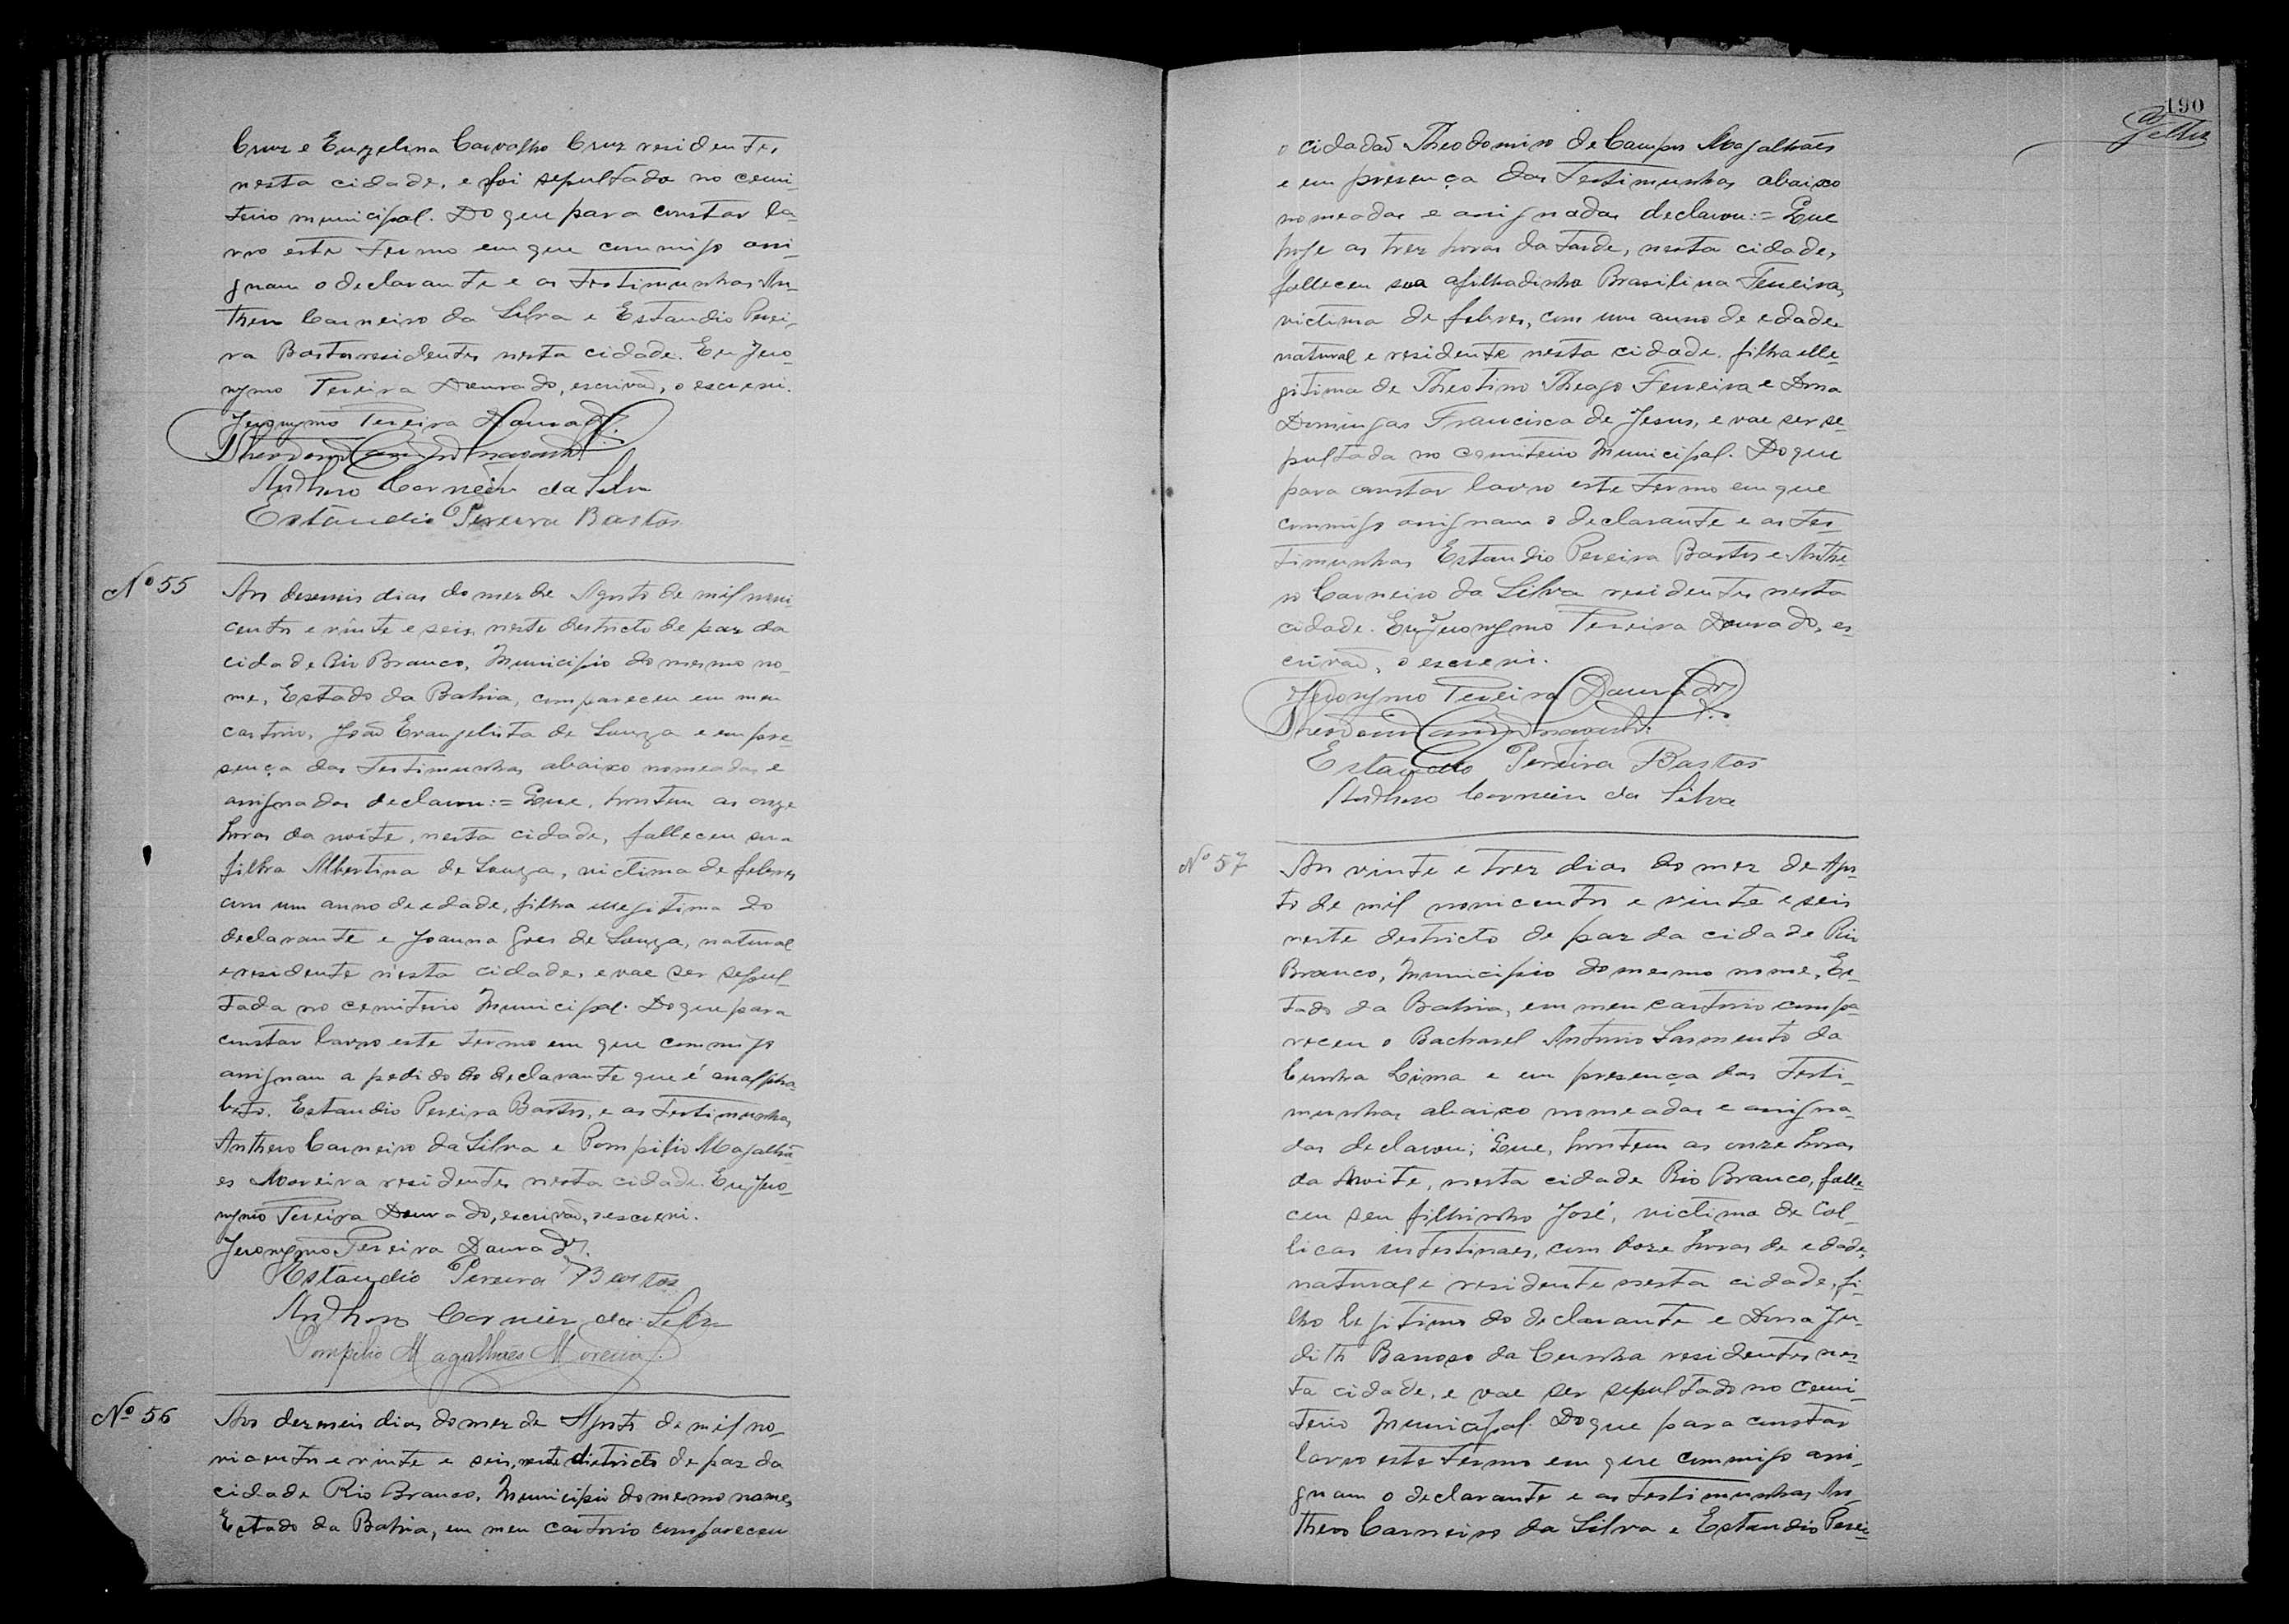 Cruz e Eugelina Carvalho Cruz residentes
nesta cidade, e foi sepultado no cemi-
terio municipal. Do que para constar la-
vro este termo em que commigo assi-
gnam o declarante e as testimunhas An-
thero Carneiro da Silva e Estaudio Perei-
ra Bastos residentes nesta cidade. Eu Jero-
nymo Pereira Dourado, escrivaõ, o escrevi.
Jeronymo Pereira Dourado.
Anthero Carneiro da Silva
Estaudio Pereira Bastos
Nº 55
Aos deseseis dias do mez de Agosto de mil novi-
centos e vinte e seis neste destricto de paz da
cidade Rio Branco, Municipio do mesmo no-
me, Estado da Bahia, compareceu em meu
cartorio, Joaõ Evangelista de Souza e em pre-
sença das testimunhas abaixo nomeadas e
assignadas declarou:= Que, hontem as onze
horas da noite, nesta cidade, falleceu sua
filha Albertina de Souza, victima de febres
com um anno de edade, filha illegitima do
declarante e Joanna de Souza, natural
e residente nesta cidade, e vae ser sepul-
tada no cemiterio Municipal. Do que para
constar lavro este termo em que commigo
assignam a pedido do declarante que é analpha-
beto, Estaudio Pereira Bastos, e as testimunhas
Anthero Carneiro da Silva e Pompilio Magalhã-
es Moreira residentes nesta cidade. Eu Jero-
nymo Pereira Dourado, escrivaõ, o escrevi.
Jeronymo Pereira Dourado.
Estaudio Pereira Bastos
Anthero Carneiro da Silva
Pompilio Magalhães Moreira.
Nº 56
Aos dezeseis dias do mez de Agosto de mil no-
vicentos e vinte e seis, neste districto de paz da
cidade Rio Branco, Municipio do mesmo nome,
Estado da Bahia, em meu cartorio compareceu
190
o cidadaõ Theodomiro de Campos Magalhães
e em presença das testimunhas abaixo
nomeadas e assignadas declarou:= Que
hoje as trez horas da tarde, nesta cidade,
falleceu sua afilhadinha Brasilina Ferreira,
victima de febres, com um anno de edade
natural e residente nesta cidade, filha elle-
gitima de Theotino Thiago Ferreira e Dona
Domingas Francisca de Jesus, e vae ser se-
pultada no cemiterio Municipal. Do que
para constar lavro este termo em que
commigo assignam o declarante e as tes-
timunhas Estaudio Pereira Bastos e Anthe-
ro Carneiro da Silva residentes nesta
cidade. Eu Jeronymo Pereira Dourado, es-
crivaõ, o escrevi.
Jeronymo Pereira Dourado.
Estaudio Pereira Bastos
Anthero Carneiro da Silva
Nº 57
Aos vinte e trez dias do mez de Agos-
to de mil novicentos e vinte e seis
neste destricto de paz da cidade Rio
Branco, Municipio do mesmo nome, Es-
tado da Bahia, em meu cartorio compa-
receu o Bacharel Antonio Sarmento da
Cunha Lima e em presença das testi-
munhas abaixo nomeadas e assigna-
das declarou; Que, hontem as onze horas
da noite, nesta cidade Rio Branco, falle-
ceu seu filhinho José, victima de Col-
licas intestinaes, com doze horas de edade,
natural e residente nesta cidade, fi-
lho legitimo do declarante e Dona Ju-
dith Barroso da Cunha residentes nes-
ta cidade, e vae ser sepultado no cemi-
terio Municipal. Do que para constar
lavro este termo em que commigo assi-
gnam o declarante e as testimunhas An-
thero Carneiro da Silva e Estaudio Perei-